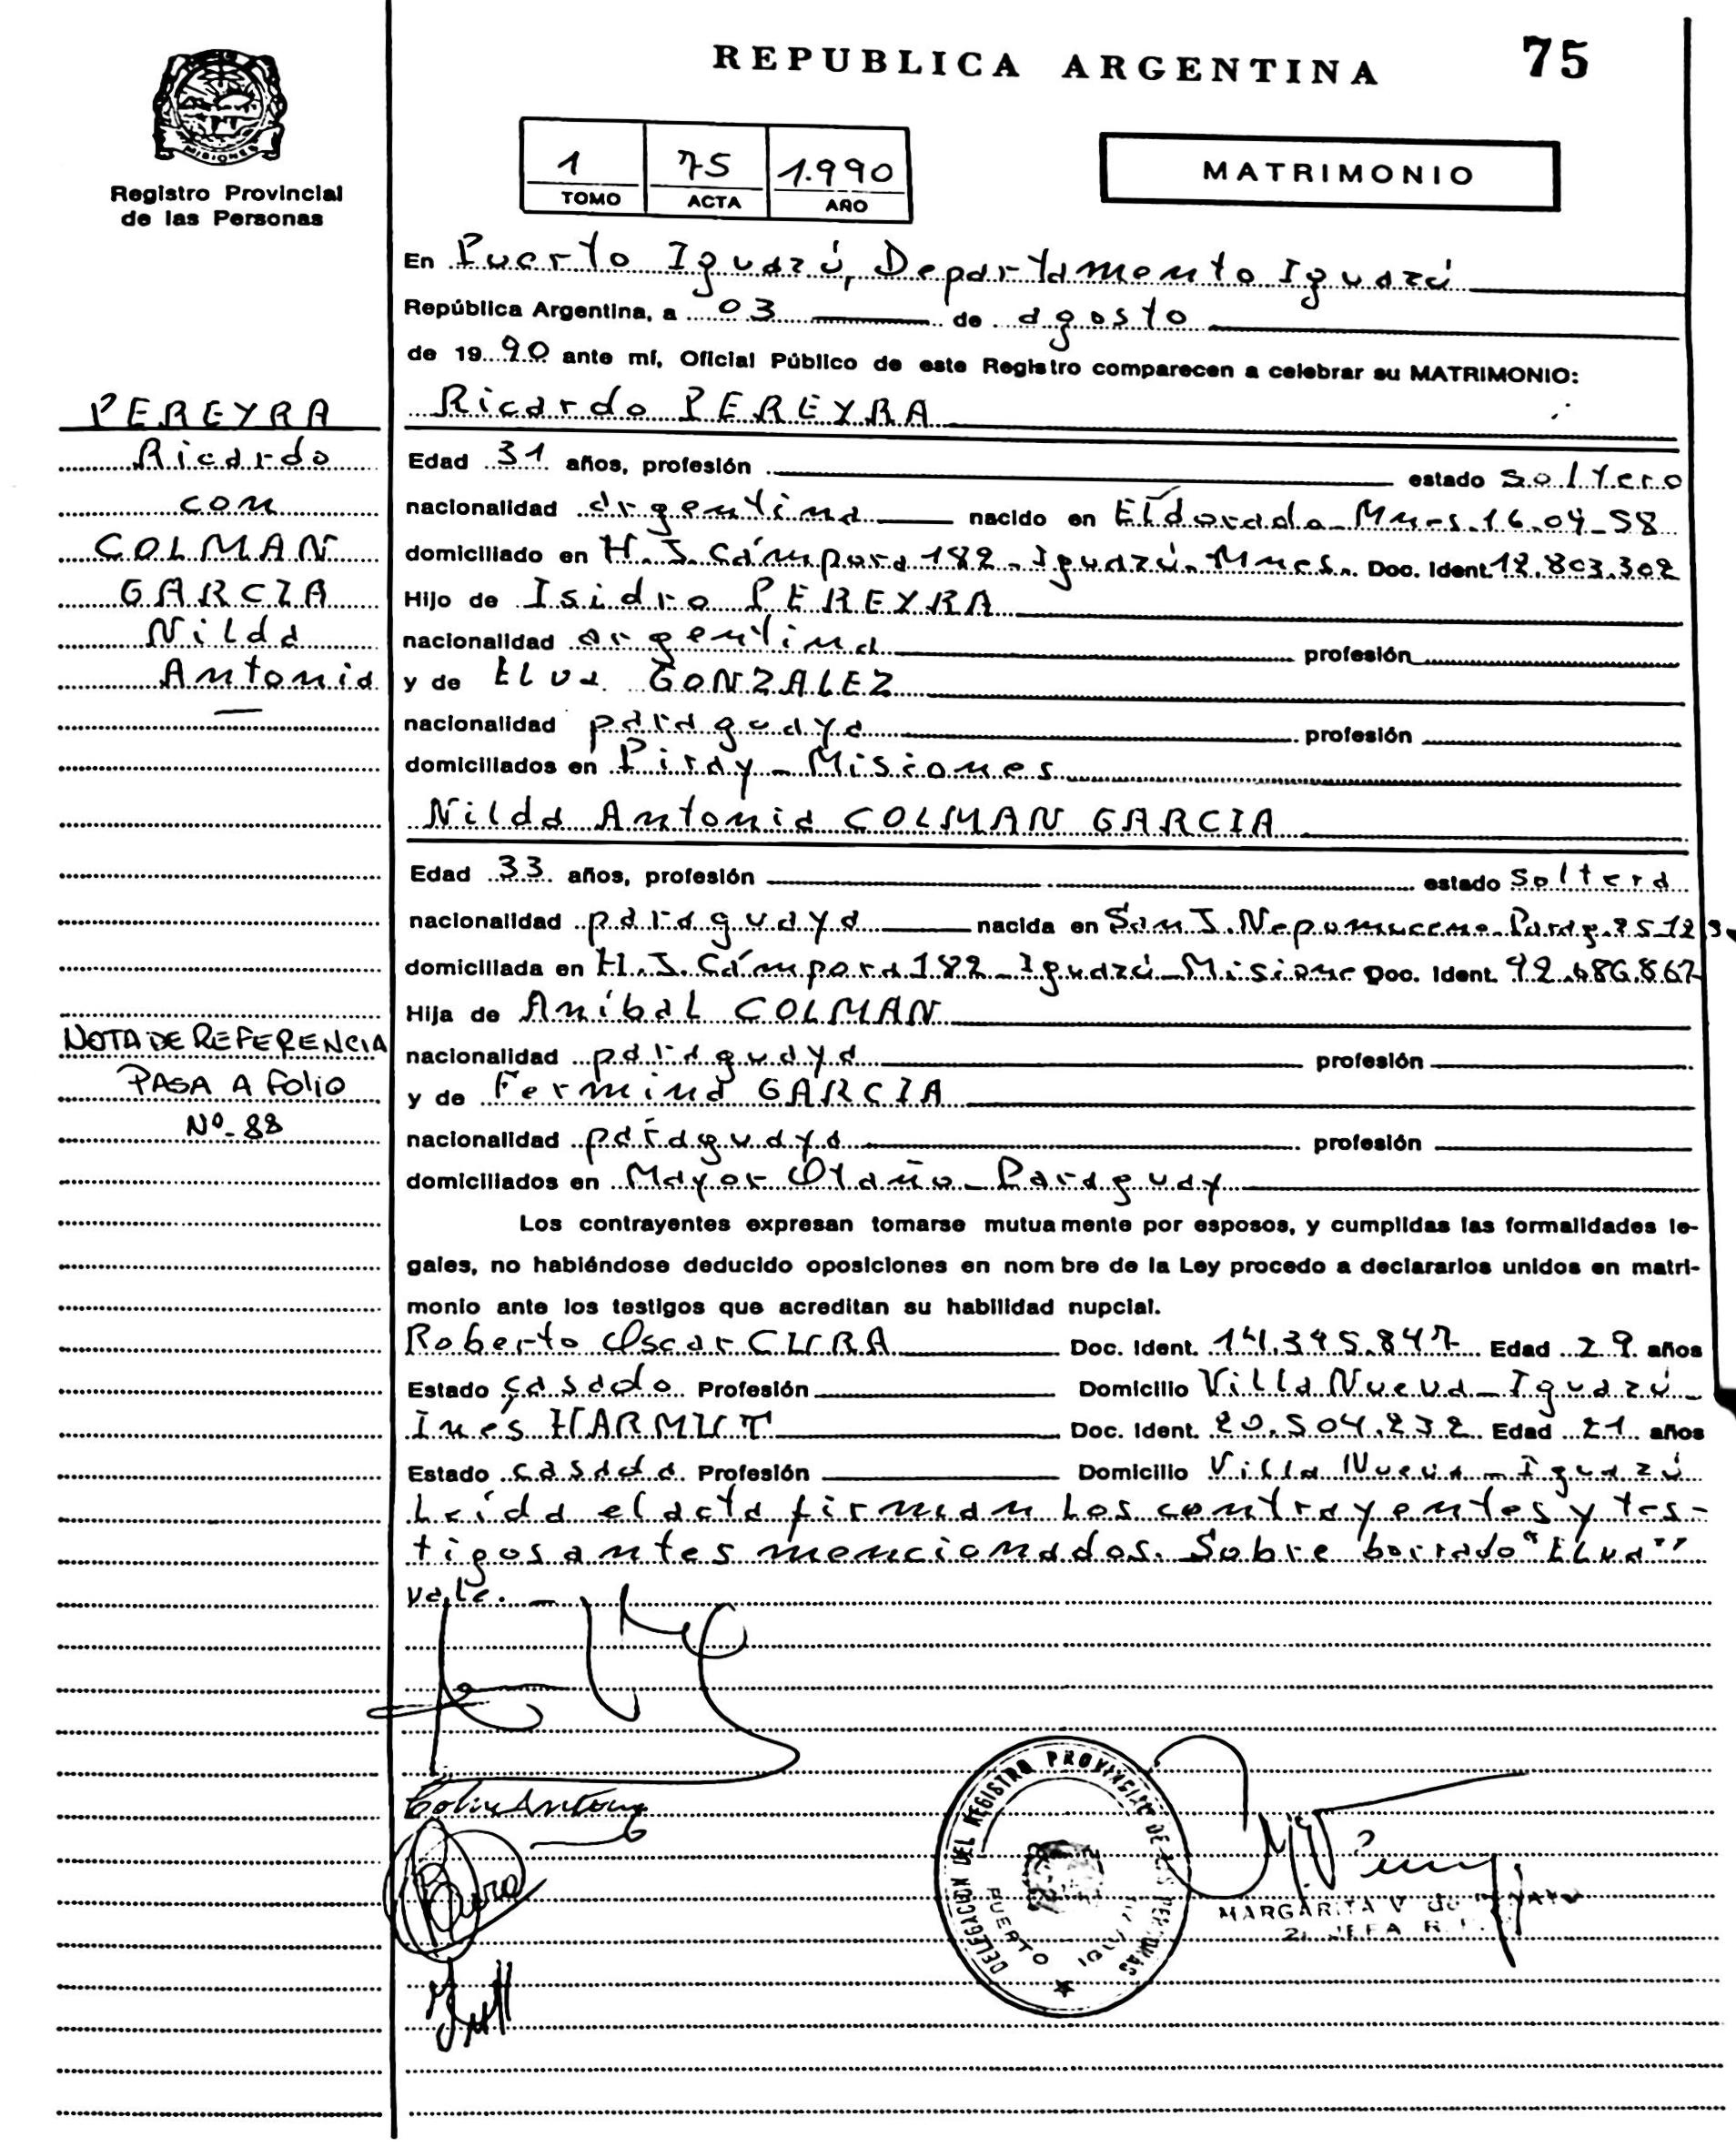 REPUBLICA ARGENTINA
75
MISIONES
Registro Provincial
de las Personas
1 75 1.990
TOMO ACTA AÑO
MATRIMONIO
En Puerto Iguazú, Departamento Iguazú
República Argentina, a 03 de agosto
de 1990 ante mí, Oficial Público de este Registro comparecen a celebrar su MATRIMONIO:
PEREYRA
Ricardo
con
COLMAN
GARCIA
Nilda
Antonia
Ricardo PEREYRA
Edad 31 años, profesión estado soltero
nacionalidad argentina nacido en Eldorado Mnes. 16-04-58
domiciliado en H. J. Cámpora 182 - Iguazú - Mnes. Doc. Ident. 12.803.302
Hijo de Isidro PEREYRA
nacionalidad argentina profesión
y de Elva GONZALEZ
nacionalidad paraguaya profesión
domiciliados en Piray - Misiones
Nilda Antonia COLMAN GARCIA
Edad 33 años, profesión estado soltera
nacionalidad paraguaya nacida en San J. Nepomuceno Parag. 25-12
domiciliada en H. J. Cámpora 182 - Iguazú - Misiones Doc. Ident. 92.686.867
Hija de Aníbal COLMAN
nacionalidad paraguaya profesión
y de Fermina GARCIA
nacionalidad paraguaya profesión
domiciliados en Mayor Otaño - Paraguay
NOTA DE REFERENCIA
PASA A FOLIO
Nº-88
Los contrayentes expresan tomarse mutuamente por esposos, y cumplidas las formalidades le-
gales, no habiéndose deducido oposiciones en nombre de la Ley procedo a declararlos unidos en matri-
monio ante los testigos que acreditan su habilidad nupcial.
Roberto Oscar CURA Doc. Ident. 14.395.847 Edad 29 años
Estado casado Profesión Domicilio Villa Nueva - Iguazú
Inés HARMUT Doc. Ident. 20.504.232 Edad 21 años
Estado casada Profesión Domicilio Villa Nueva - Iguazú
Leída el acta firman los contrayentes y tes-
tigos antes mencionados. Sobre borrado "Elva"
vale. -
DELEGACION DEL REGISTRO PROVINCIAL DE LAS PERSONAS
PUERTO IGUAZU
MARGARITA V de
2. JEFA R.